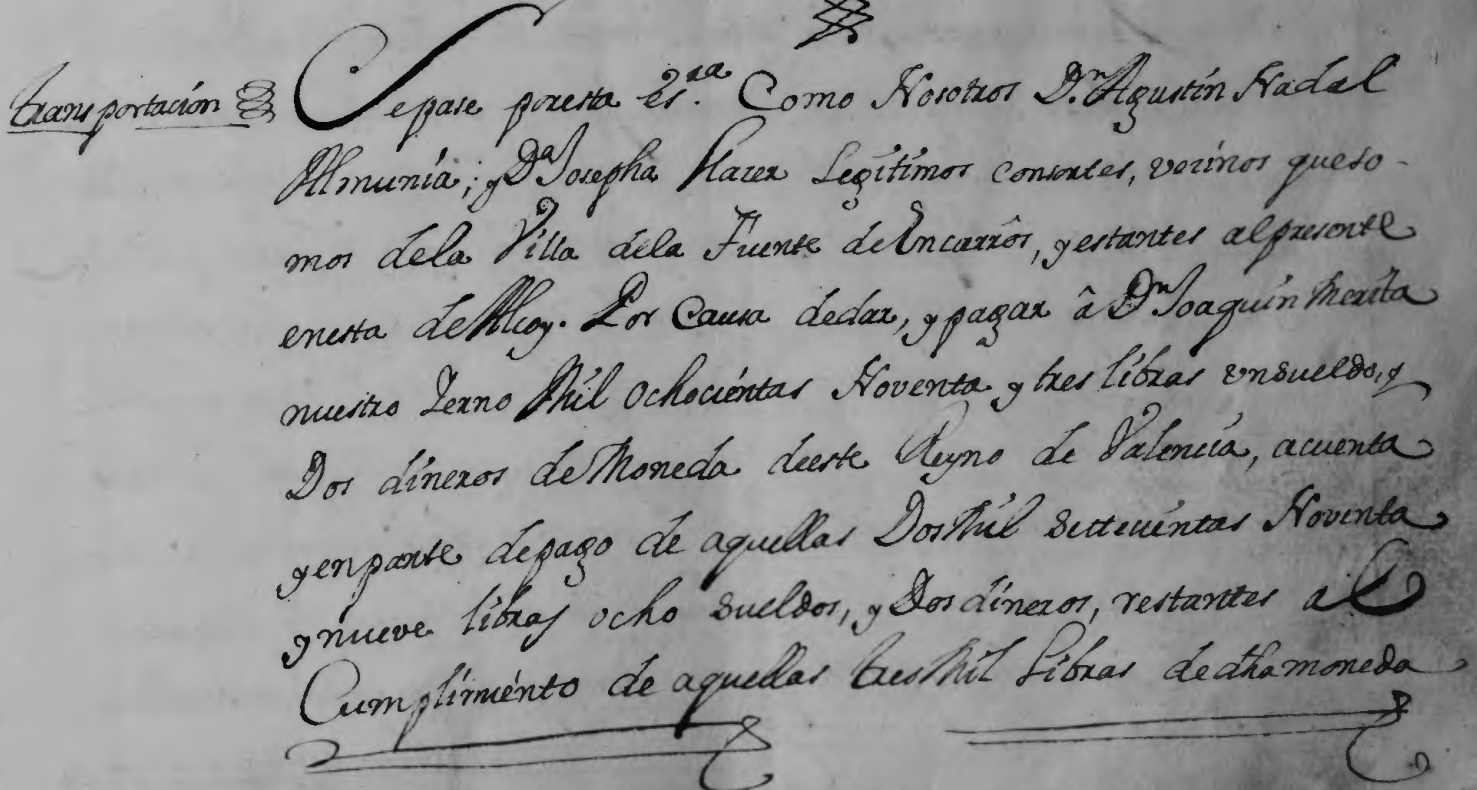 transportación
Sepase poresta es.ra Como Nosotros D.n Agustín Nadal
Almunía; y D.a Josepha Llacer Legítimos consortes, vecinos queso-
mos dela Villa dela Fuente de Encarrôs, yestantes alpresente
enesta de Alcoy. Por Causa dedar, y pagar â D.n Joaquin Merita
nuestro Yerno Mil ochocientas Noventa y tres libras unsueldo, y
Dos díneros de Moneda deeste Reyno de Valencia, acuenta
yenparte depago de aquellas DosMil Settecientas Noventa
ynueve libras ocho sueldos, y Dos díneros, restantes al
Cumplimiento de aquellas tresMil Libras de dha moneda